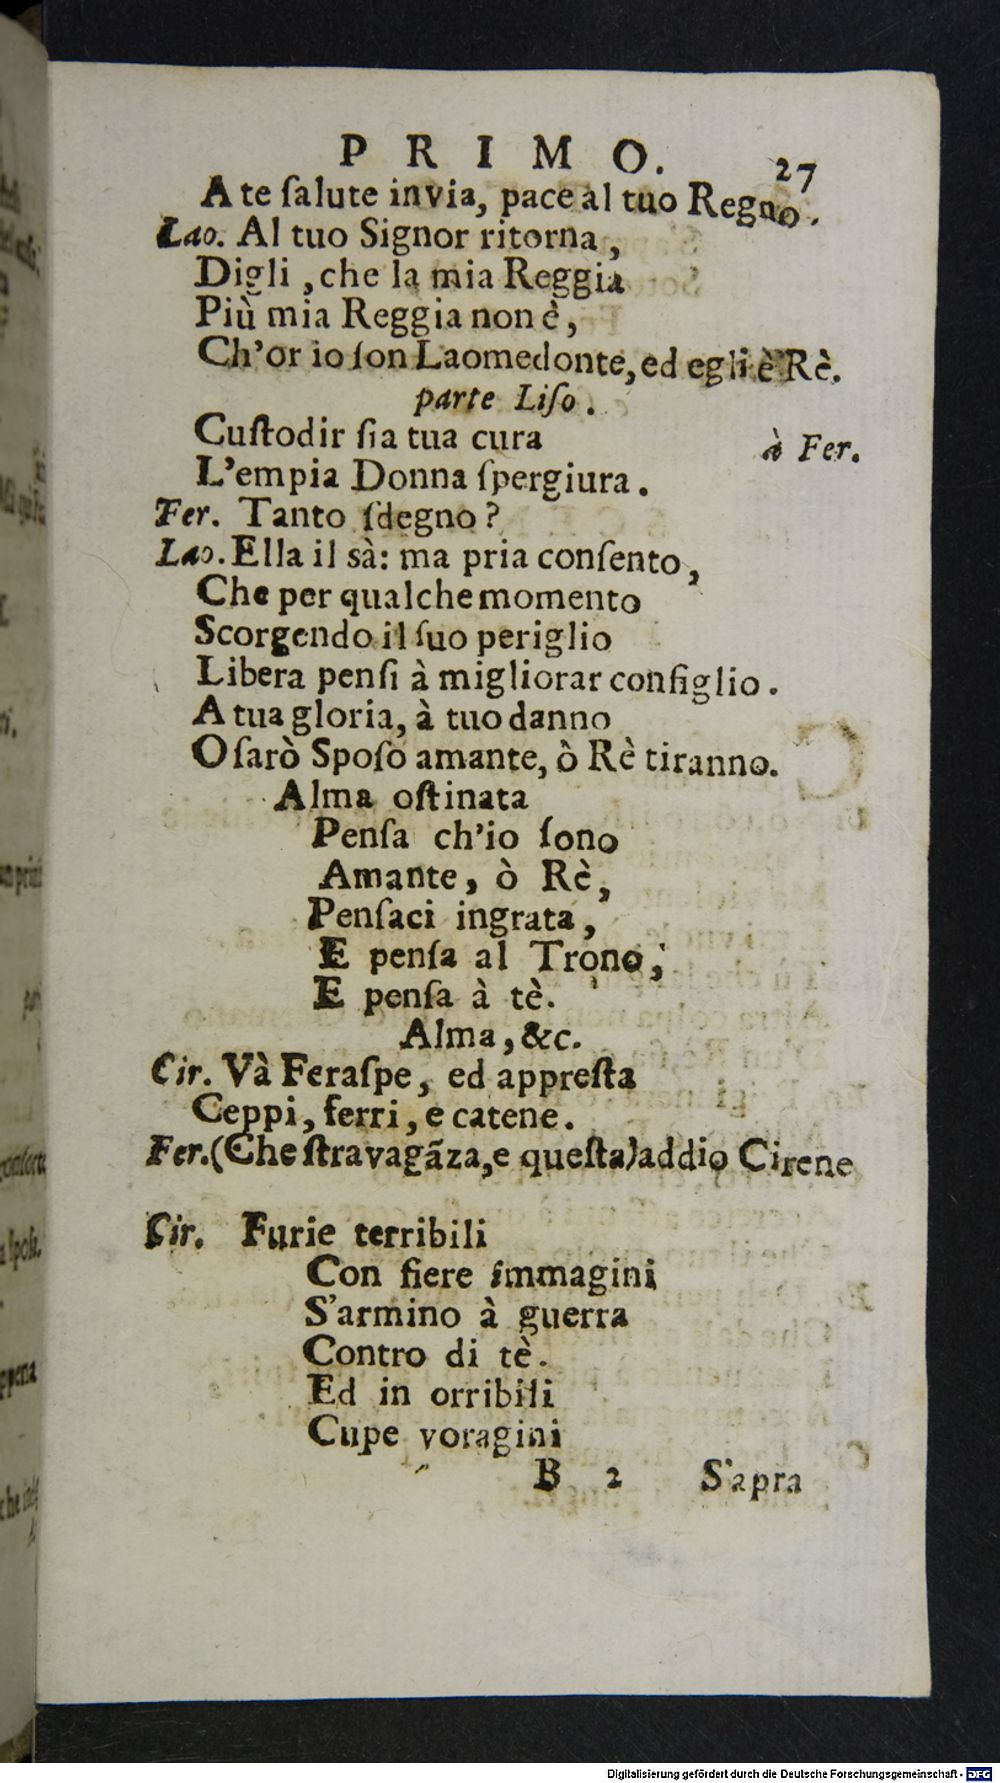 PRIMO. 27
A te ſalute invia, pace al tuo Regno.
Lao. Al tuo Signor ritorna,
Digli, che la mia Reggia
Più mia Reggia non è,
Ch'or io ſon Laomedonte, ed egli è Rè.
parte Liſo.
Cuſtodir ſia tua cura à Fer.
L'empia Donna ſpergiura.
Fer. Tanto ſdegno?
Lao. Ella il sà: ma pria conſento,
Che per qualche momento
Scorgendo il ſuo periglio
Libera penſi à migliorar conſiglio.
A tua gloria, à tuo danno
O ſarò Spoſo amante, ò Rè tiranno.
Alma oſtinata
Penſa ch'io ſono
Amante, ò Rè,
Penſaci ingrata,
E penſa al Trono;
E penſa à tè.
Alma, &c.
Cir. Và Feraſpe, ed appreſta
Ceppi, ferri, e catene.
Fer. (Che ſtravagãza, e queſta) addio Cirene
Cir. Furie terribili
Con fiere immagini
S'armino à guerra
Contro di tè.
Ed in orribili
Cupe voragini
B 2 S'apra
Digitalisierung gefördert durch die Deutsche Forschungsgemeinschaft - DFG